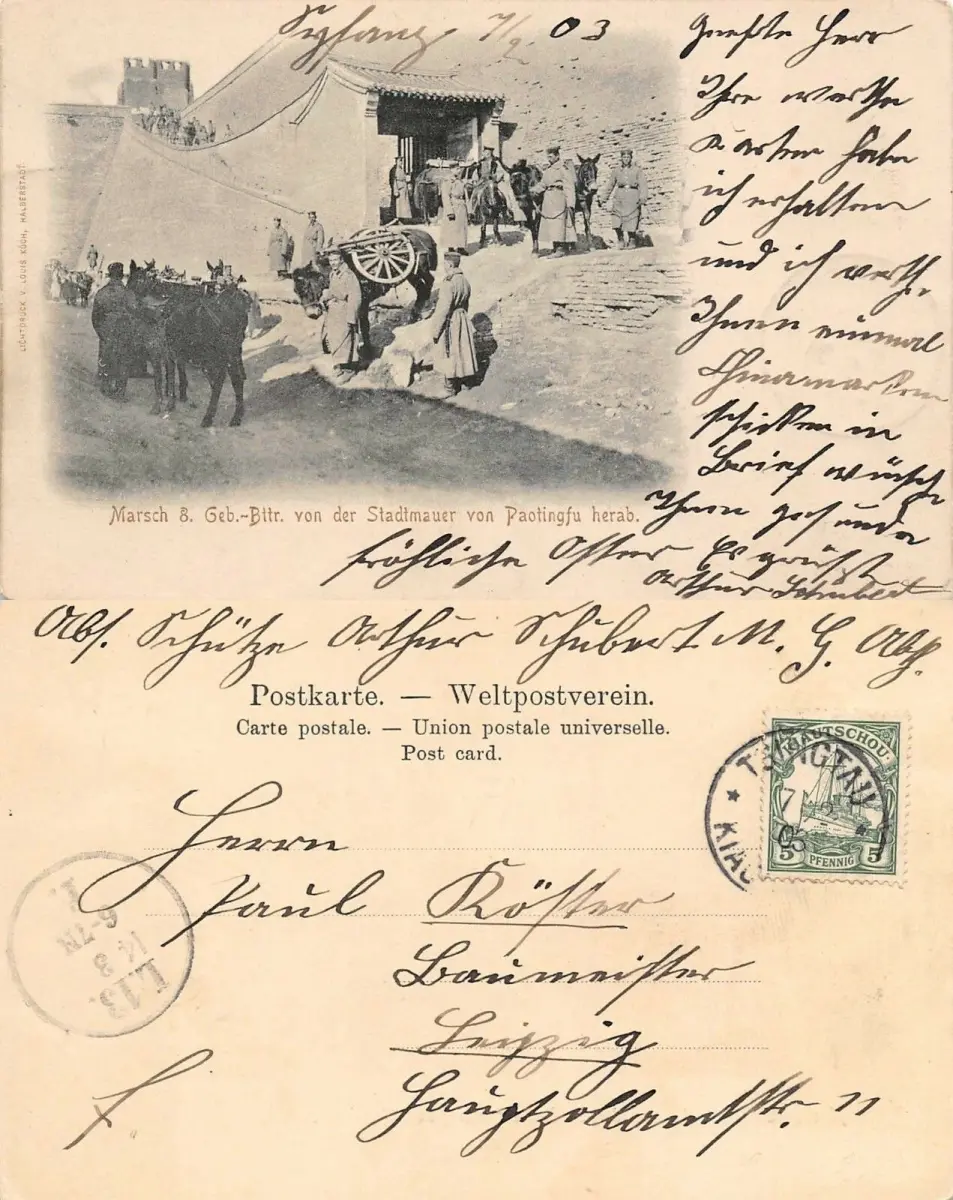 Syfang 7/2. 03
Geehrter Herr
Ihre werthe
Karten habe
ich erhalten
und ich werth.
Ihnen einmal
Chinamarken
schicken in
Brief wünsche
Ihnen gesunde
fröhliche Oster Es grüßt
Arthur Schubert
LICHTDRUCK V. LOUIS KOCH, HALBERSTADT.
Marsch 8. Geb.-Bttr. von der Stadtmauer von Paotingfu herab.
Abs. Schütze Arthur Schubert M. G. Abth.
Postkarte. — Weltpostverein.
Carte postale. — Union postale universelle.
Post card.
KIAUTSCHOU
5 PFENNIG 5
TSINGTAU
7 2
03
KIAU
Herrn
Paul Köster
Baumeister
Leipzig
Hauptzollamtstr. 11
L.13.
14 3
6-7N